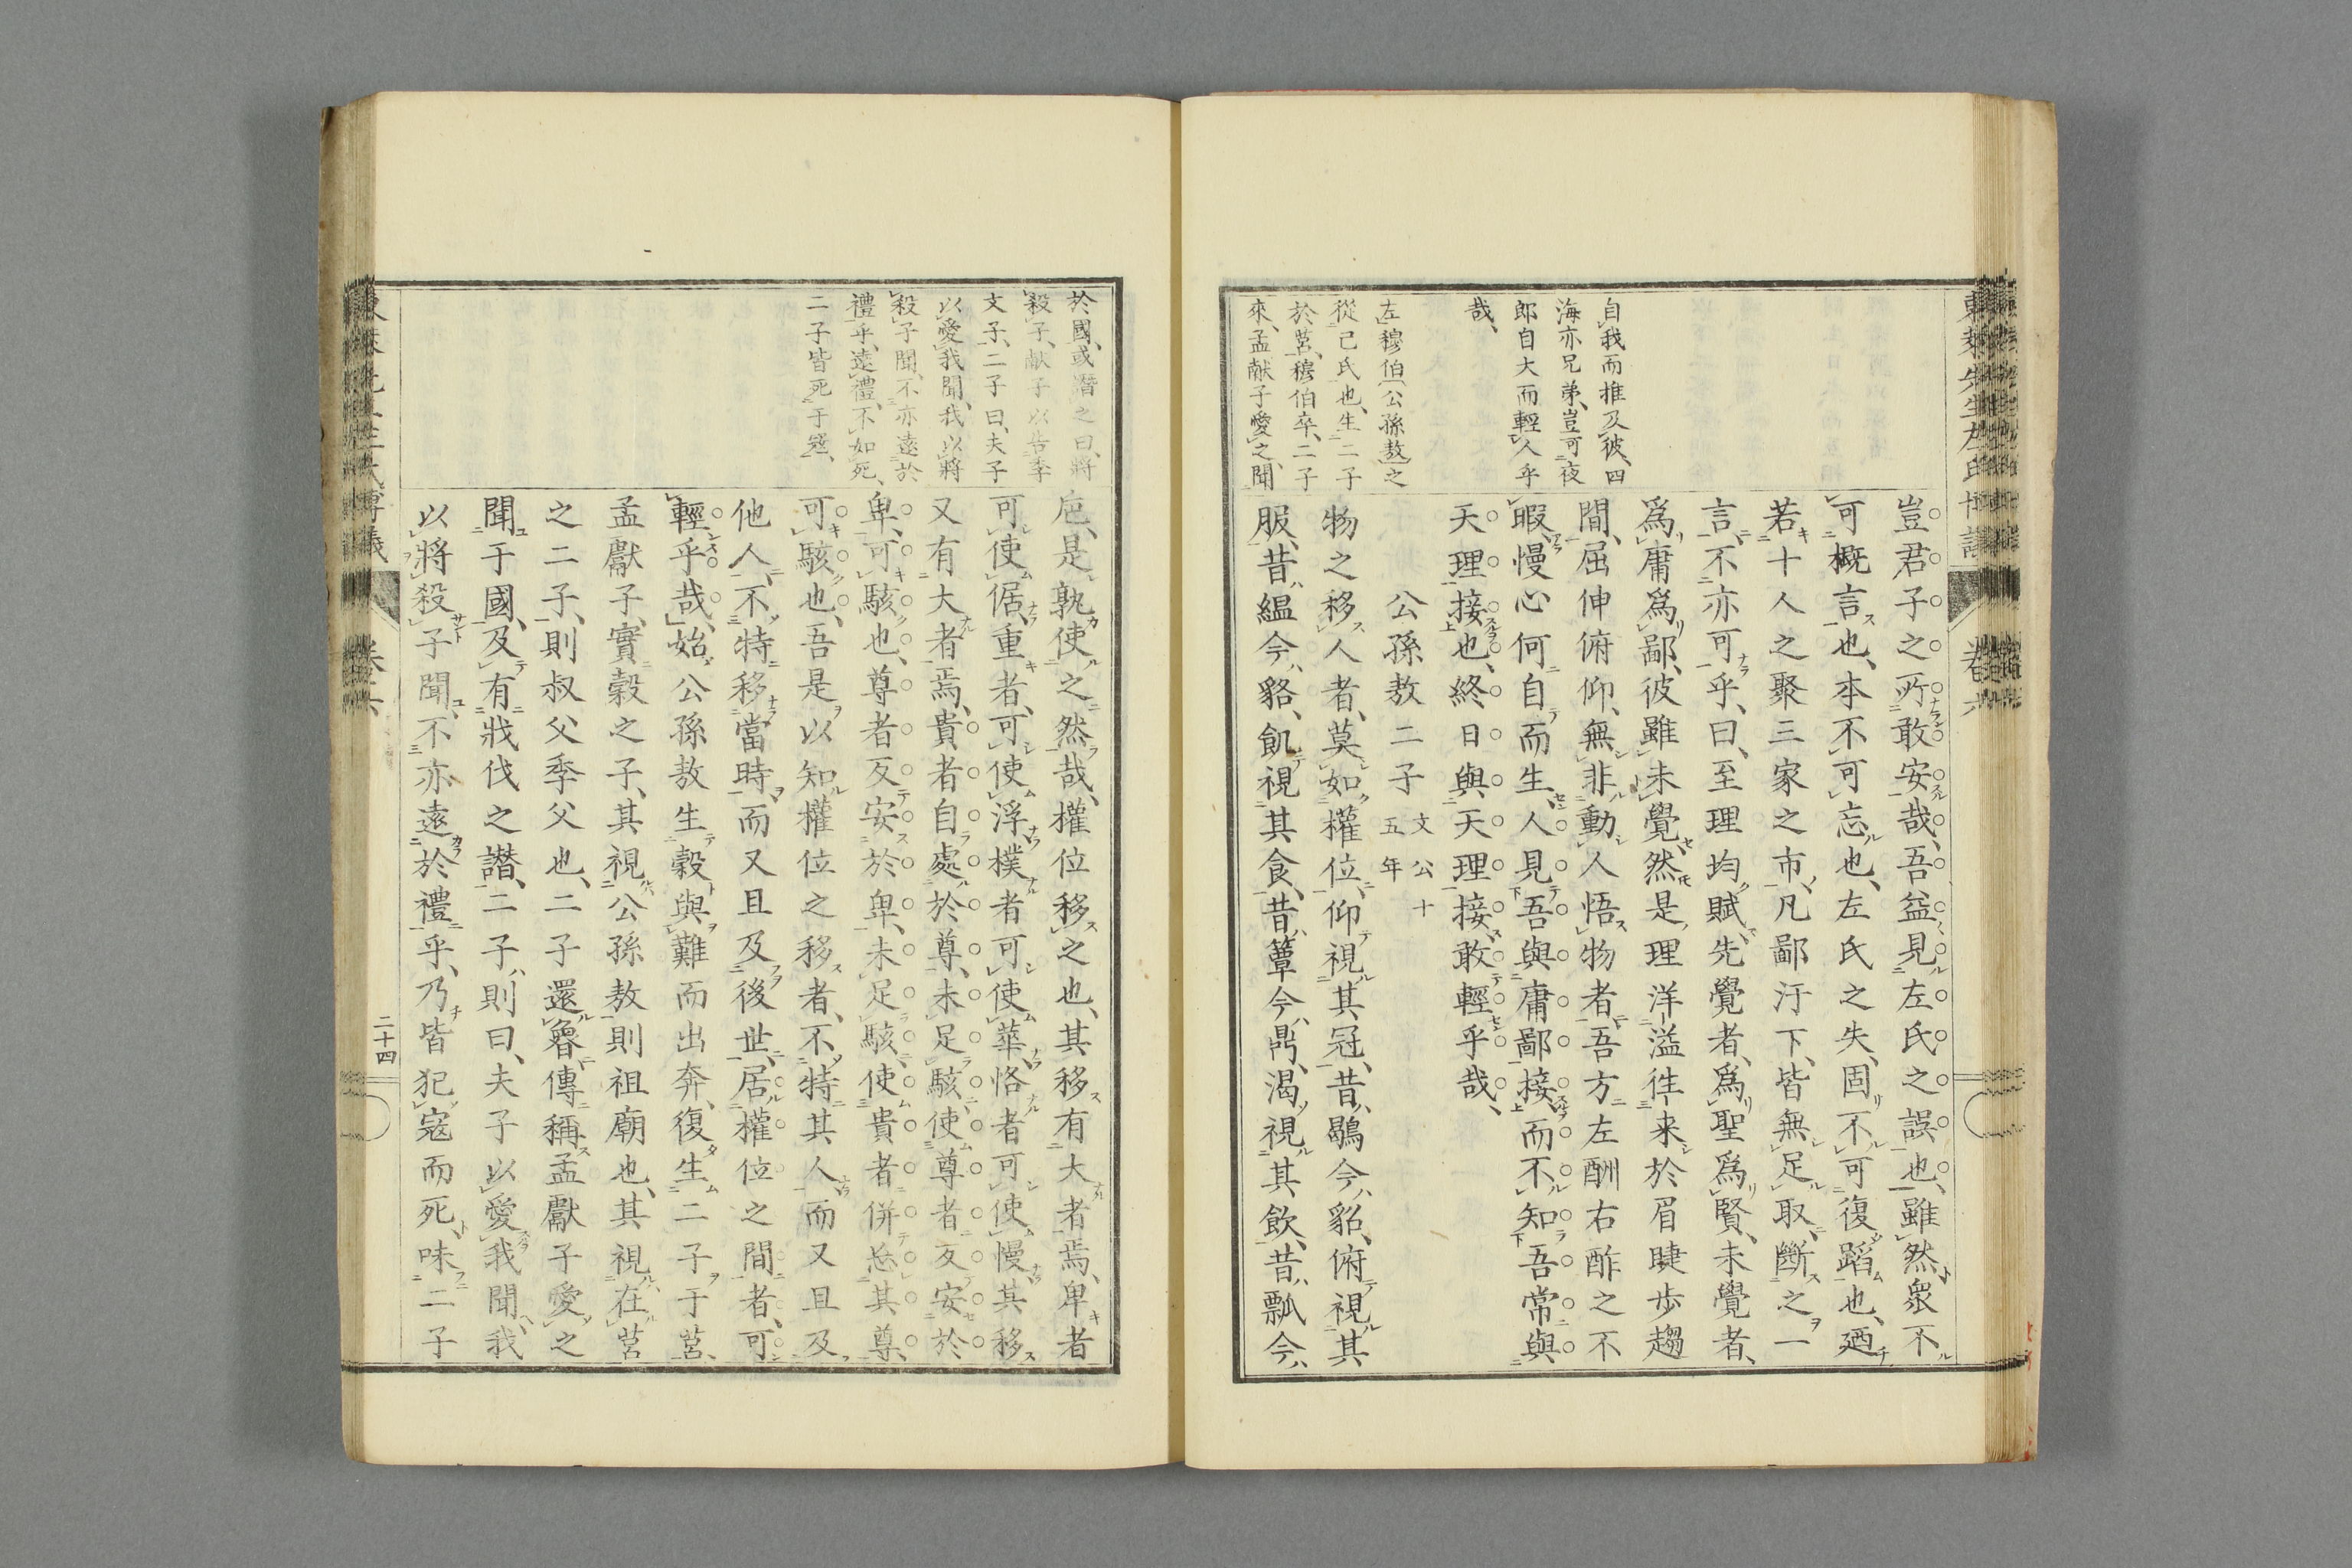 東萊先生左氏博議
卷六
自我而推及彼、四
海亦兄弟、豈可夜
郎自大而輕人乎
哉、
左穆伯(公孫敖)之
從己氏也、生二子
於莒、穆伯卒、二子
來、孟献子愛之、聞
豈君子之所敢安哉、吾益見左氏之誤也、雖然衆不
可概言也、本不可忘也、左氏之失、固不可復蹈也、廼
若十人之聚三家之市、凡鄙汙下、皆無足取、斷之一
言、不亦可乎、曰、至理均賦、先覺者、爲聖爲賢、未覺者、
爲庸爲鄙、彼雖未覺、然是理洋溢往来於眉睫步趨
間、屈伸俯仰、無非動人悟物者、吾方左酬右酢之不
暇、慢心何自而生、人見吾與庸鄙接、而不知吾常與
天理接也、終日與天理接、敢輕乎哉、
公孫敖二子 文公十五年
物之移人者、莫如權位、仰視其冠、昔鶡今貂、俯視其
服、昔縕今貉、飢視其食、昔蕈今鼎、渴視其飲、昔瓢今
於國、或譖之曰、將
殺子、献子以告季
文子、二子曰、夫子
以愛我聞、我以將
殺子聞、不亦遠於
禮乎、遠禮、不如死、
二子皆死于寇、
巵、是孰使之然哉、權位移之也、其移有大者焉、卑者
可使倨、重者、可使浮、樸者可使華、恪者可使慢、其移
又有大者焉、貴者自處於尊、未足駭、使尊者反安於
卑、可駭也、尊者反安於卑、未足駭、使貴者併忘其尊、
可駭也、吾是以知權位之移者、不特其人、而又且及
他人、不特移當時、而又且及後世、居權位之間者、可
輕乎哉、始公孫敖生穀與難而出奔、復生二子于莒、
孟獻子、實穀之子、其視公孫敖、則祖廟也、其視在莒
之二子、則叔父季父也、二子還魯、傳稱孟獻子愛之
聞于國、及有戕伐之譖、二子則曰、夫子以愛我聞、我
以將殺子聞、不亦遠於禮乎、乃皆犯寇而死、味二子
東萊先生左氏博議
卷六
二十四